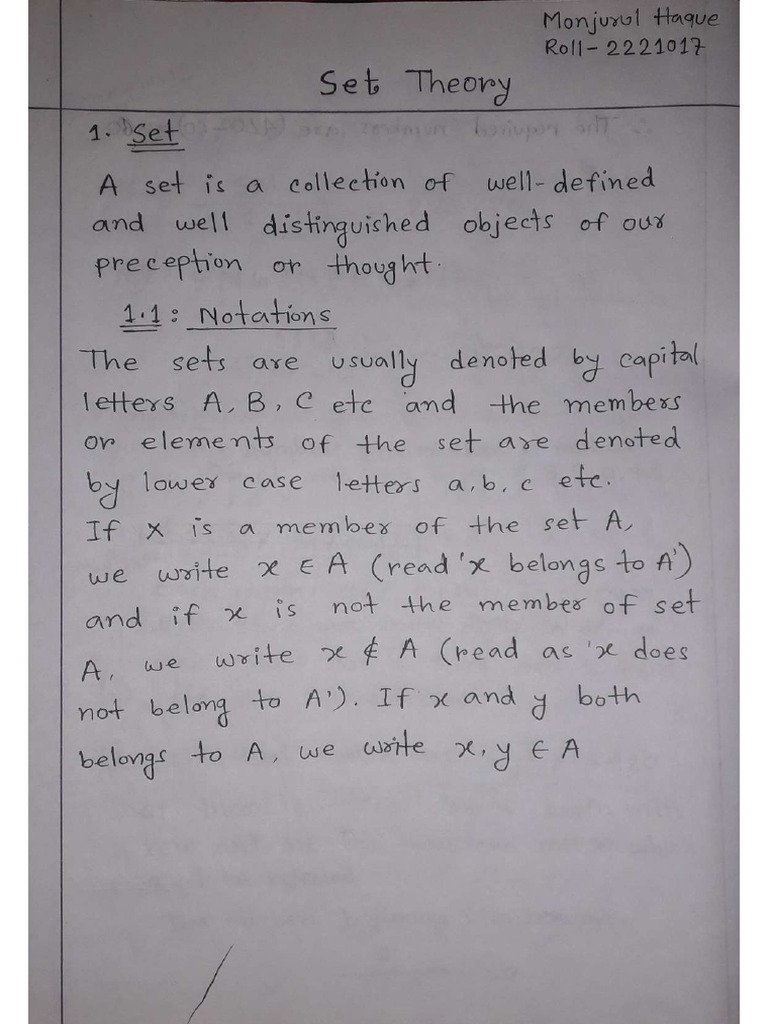 Monjurul Haque
Roll- 2221017
Set Theory
1. Set
A set is a collection of well-defined
and well distinguished objects of our
preception or thought.
1.1: Notations
The sets are usually denoted by capital
letters A, B, C etc and the members
or elements of the set are denoted
by lower case letters a, b, c etc.
If x is a member of the set A,
we write x ∈ A (read 'x belongs to A')
and if x is not the member of set
A, we write x ∉ A (read as 'x does
not belong to A'). If x and y both
belongs to A, we write x, y ∈ A